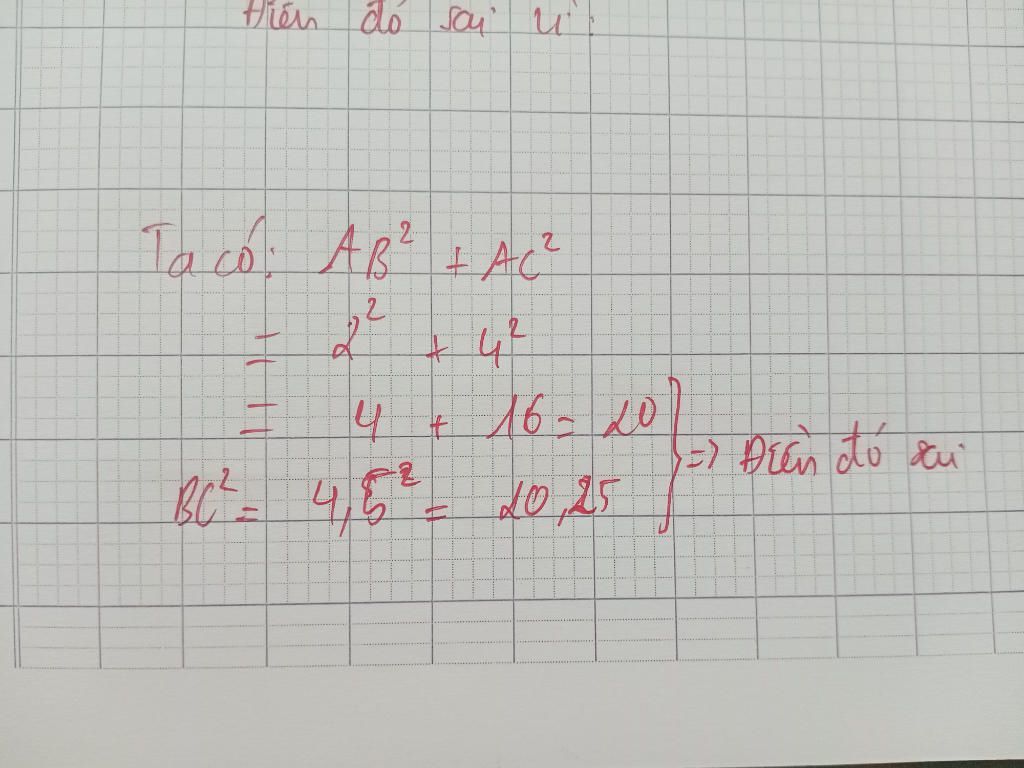 Điền đó sai vì:
Ta có: AB² + AC²
= 2² + 4²
= 4 + 16 = 20
BC² = 4,5² = 20,25
} => Điền đó sai